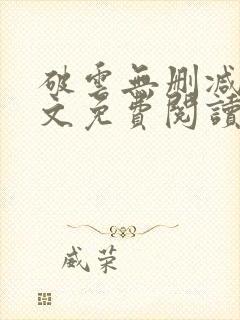 破雲無刪減
文免費閱讀
威荣